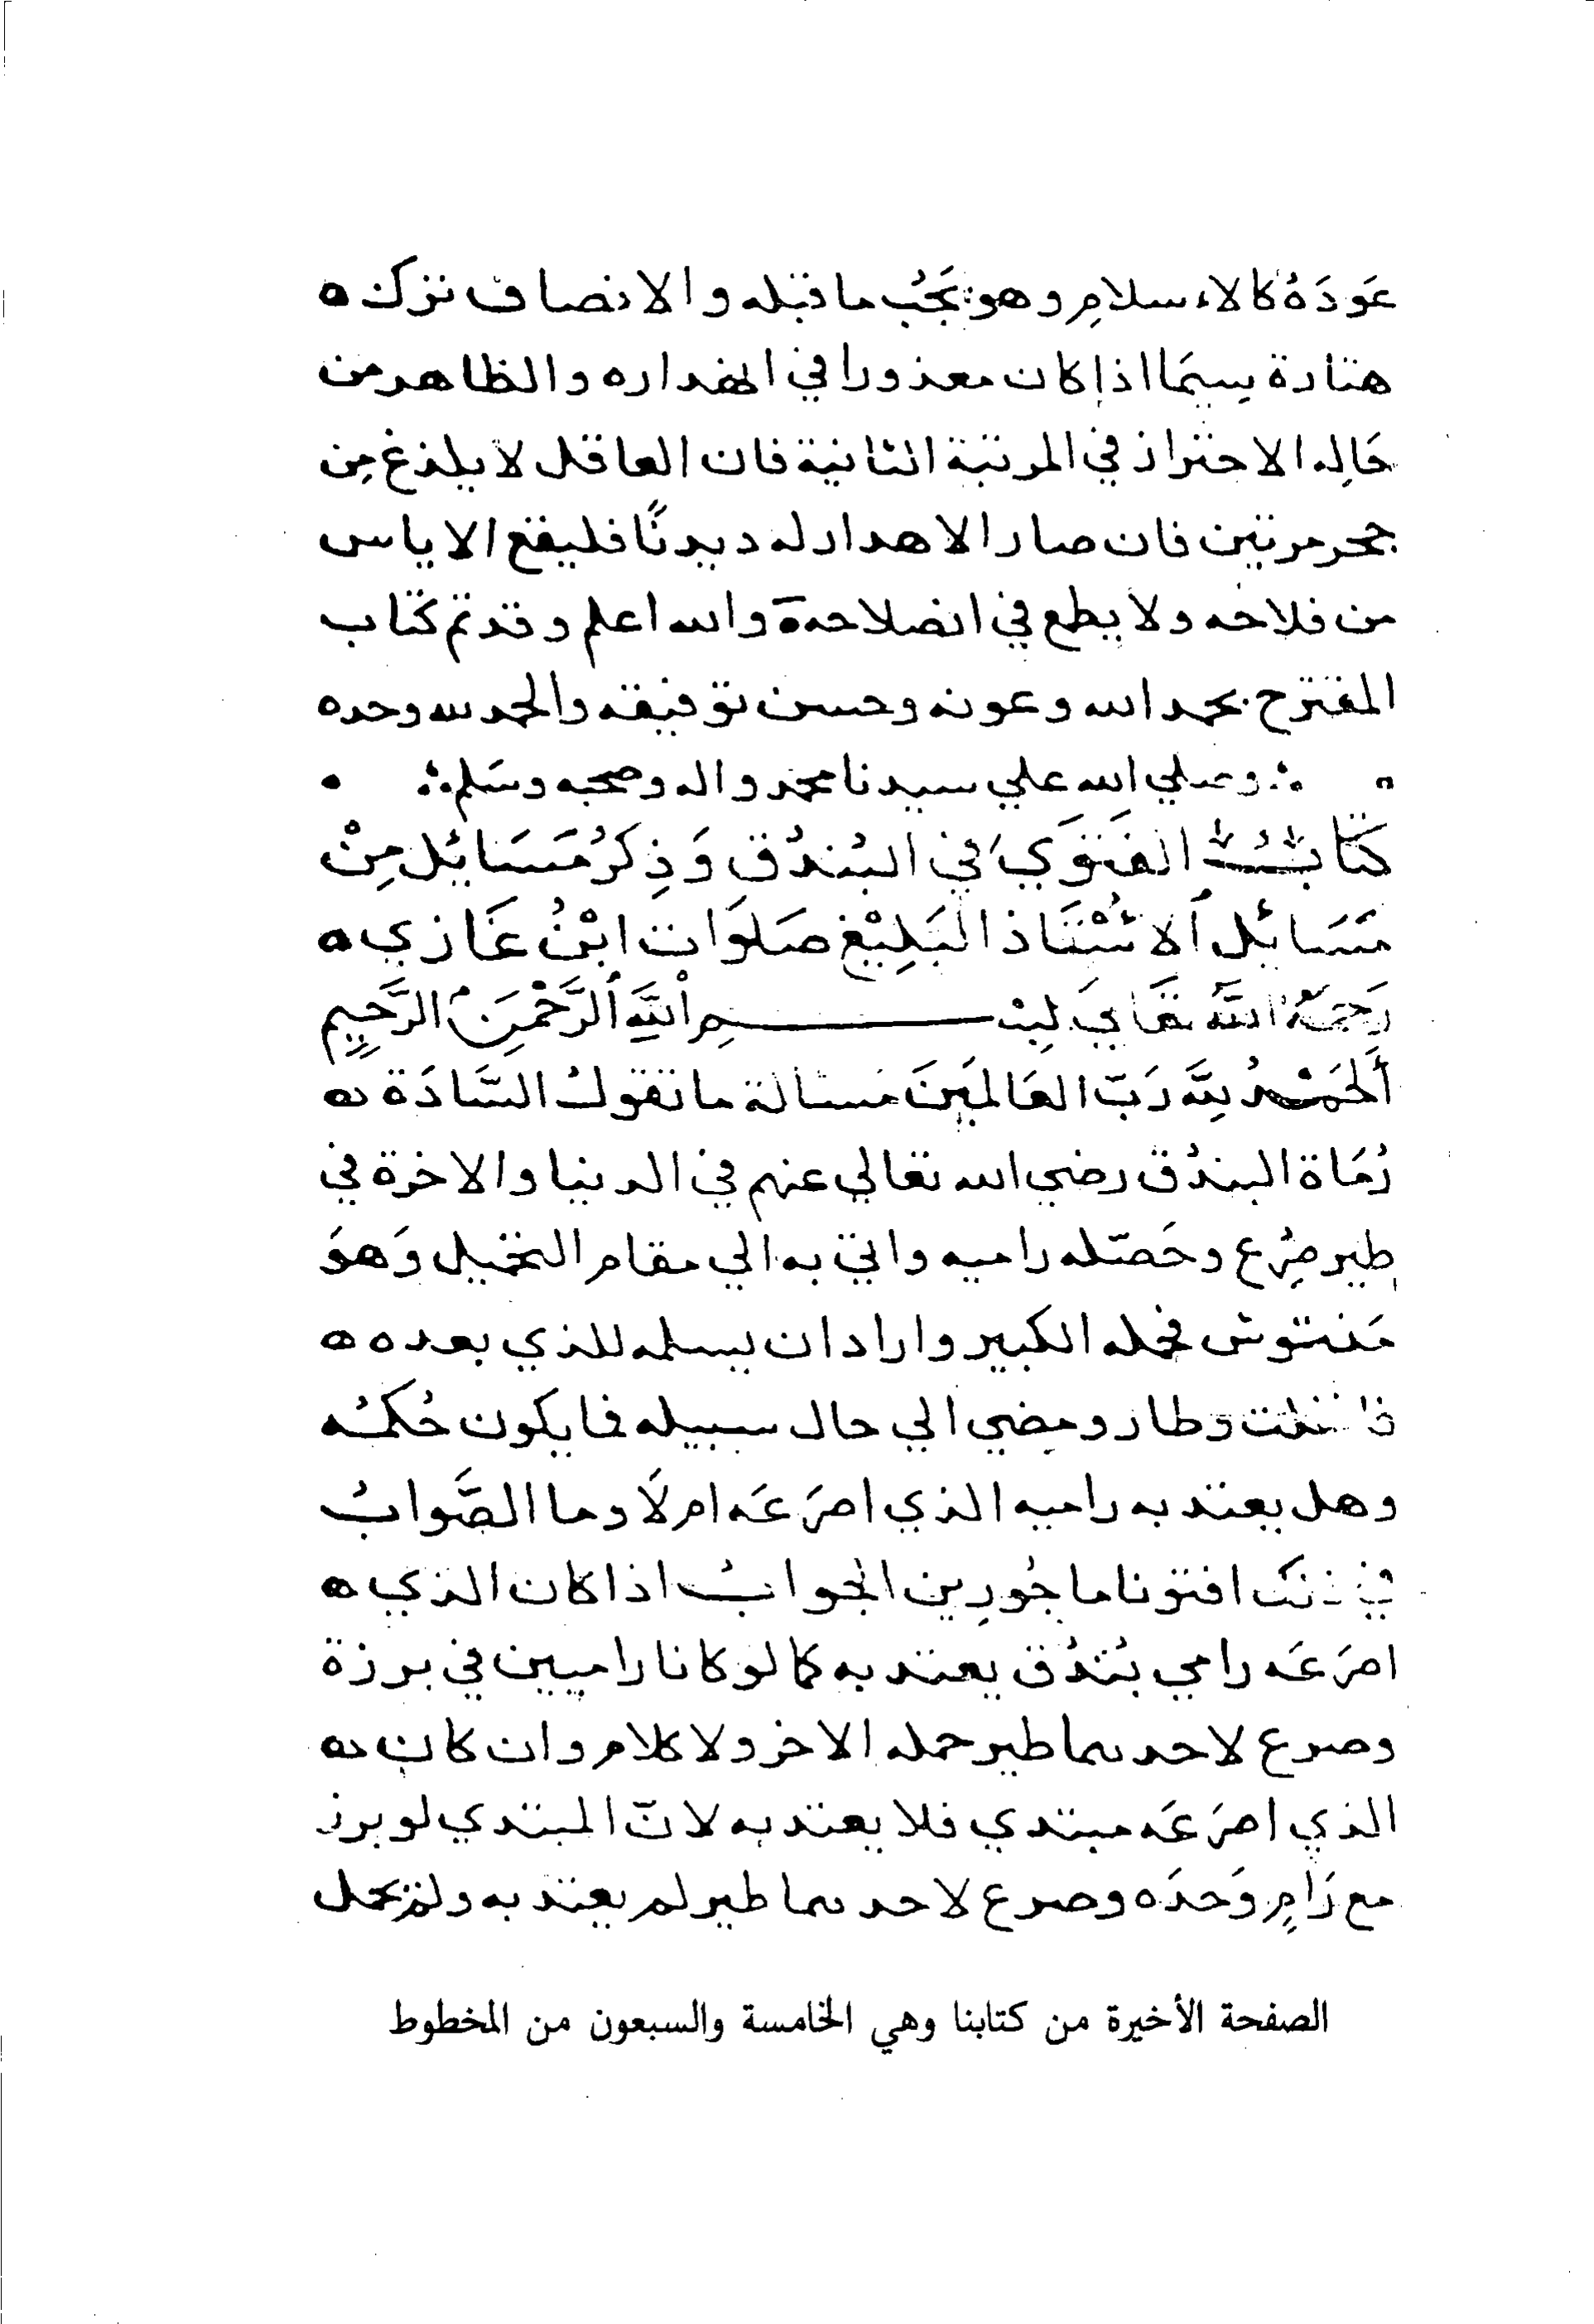 عَودَهُ كالاءسلامِ وهو يَجُبُ ما قبله والانصاف ترك ه
هتارة سِيَما اذا كان معذورا في اهداره والظاهر من
حَالِه الاحتراز في المرتبة الثانية فان العاقل لا يلذغ مِن
جحر مرتين فان صار الاهدار له ديدنًا فليقع الاياس
من فلاحه ولا يطمع في انصلاحه والله اعلم وقد تم كتاب
المقترح بحمد الله وعونه وحسن توفيقه والحمد لله وحده
وصلي الله علي سيدنا محمد واله وصحبه وسَلم
كتَابُ الفَتوَي في البُندُق وَذِكرُ مَسَايُل مِنْ
مَسَائل اَلاُسْتَاذ البَلِيْغ صَلوَات ابْنُ غَازي ه
رَحمَهُ اللَّه تعَالَي بِسْـــــمِ اْللَّهِ اَلرَّحْمَنِ الرَّحِيِم
اَلحَمْدُ لِلَّه رَبّ العَالمَينَ مَسالة ما تقولُ السَّادَة ه
رُمَاة البندُق رضي الله تعالي عنهم في الدنيا والاخرة في
طيرٍ صُرِع وحَصّله راميه واتي به الي مقام التحميل وَهوَ
مَنتوش فحمله الكبير واراد ان يسلمه للذي بعده ه
فانفلت وطار ومضي الي حال سبيله فما يكون حُكمُه
وهل يعتد به راميه الذي اصرَعَه ام لَا وما الصَّوابُ
في ذلك افتونا ماجُورِين الجوابُ اذا كان الذي ه
اصرَعَه رامي بُندُق يعتد به كما لو كانا راميين في برزة
وصرع لاحدهما طير حمله الاخر ولا كلام وان كان ه
الذي اصرَعَه مبتدي فلا يعتد به لانّ المبتدي لو برز
مع رَامٍ وَحدَه وصرع لاحدهما طير لم يعتد به ولم يحل
الصفحة الأخيرة من كتابنا وهي الخامسة والسبعون من المخطوط